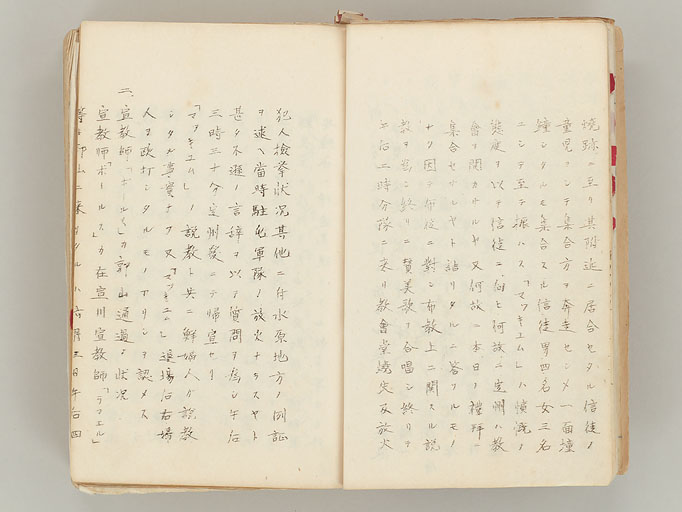 焼跡ニ至リ其附近ニ居合セタル信徒ノ
童児ヲシテ集合方ヲ奔走セシメ一面撞
鐘シタルモ集合スル信徒男四名女三名
ニシテ至テ振ハス「マツキユム」ハ憤慨ノ
態度ヲ以テ信徒ニ向ヒ何故ニ定州ハ教
會ヲ開カサルヤ又何故ニ本日ノ禮拝ニ
集合セサルヤト詰リタルニ答フルモノ
ナク因テ布従ニ對シ布教上ニ関スル説
教ヲ為シ終リニ賛美歌ヲ合唱シ終リテ
午后二時分隊ニ来リ教會堂焼失及放火
犯人検挙状况其他ニ付水原地方ノ例証
ヲ述ヘ當時駐屯軍隊ノ放火ナラスヤト
甚タ不遜ノ言辞ヲ以テ質問ヲ為シ午后
三時三十分定州發ニテ帰宣セリ
「マツキユム」ノ説教ト共ニ鮮婦人カ説教
シタル事実ナク又「マツキユム」退場后右婦
人ヲ殴打シタルモノアリシヲ認メス
二、宣教師「ポールス」カ郭山通過ノ状况
宣教師「ポールス」カ在宣川宣教師「ラフエル」
等ト郭山ニ来リタルハ六月三日午后四